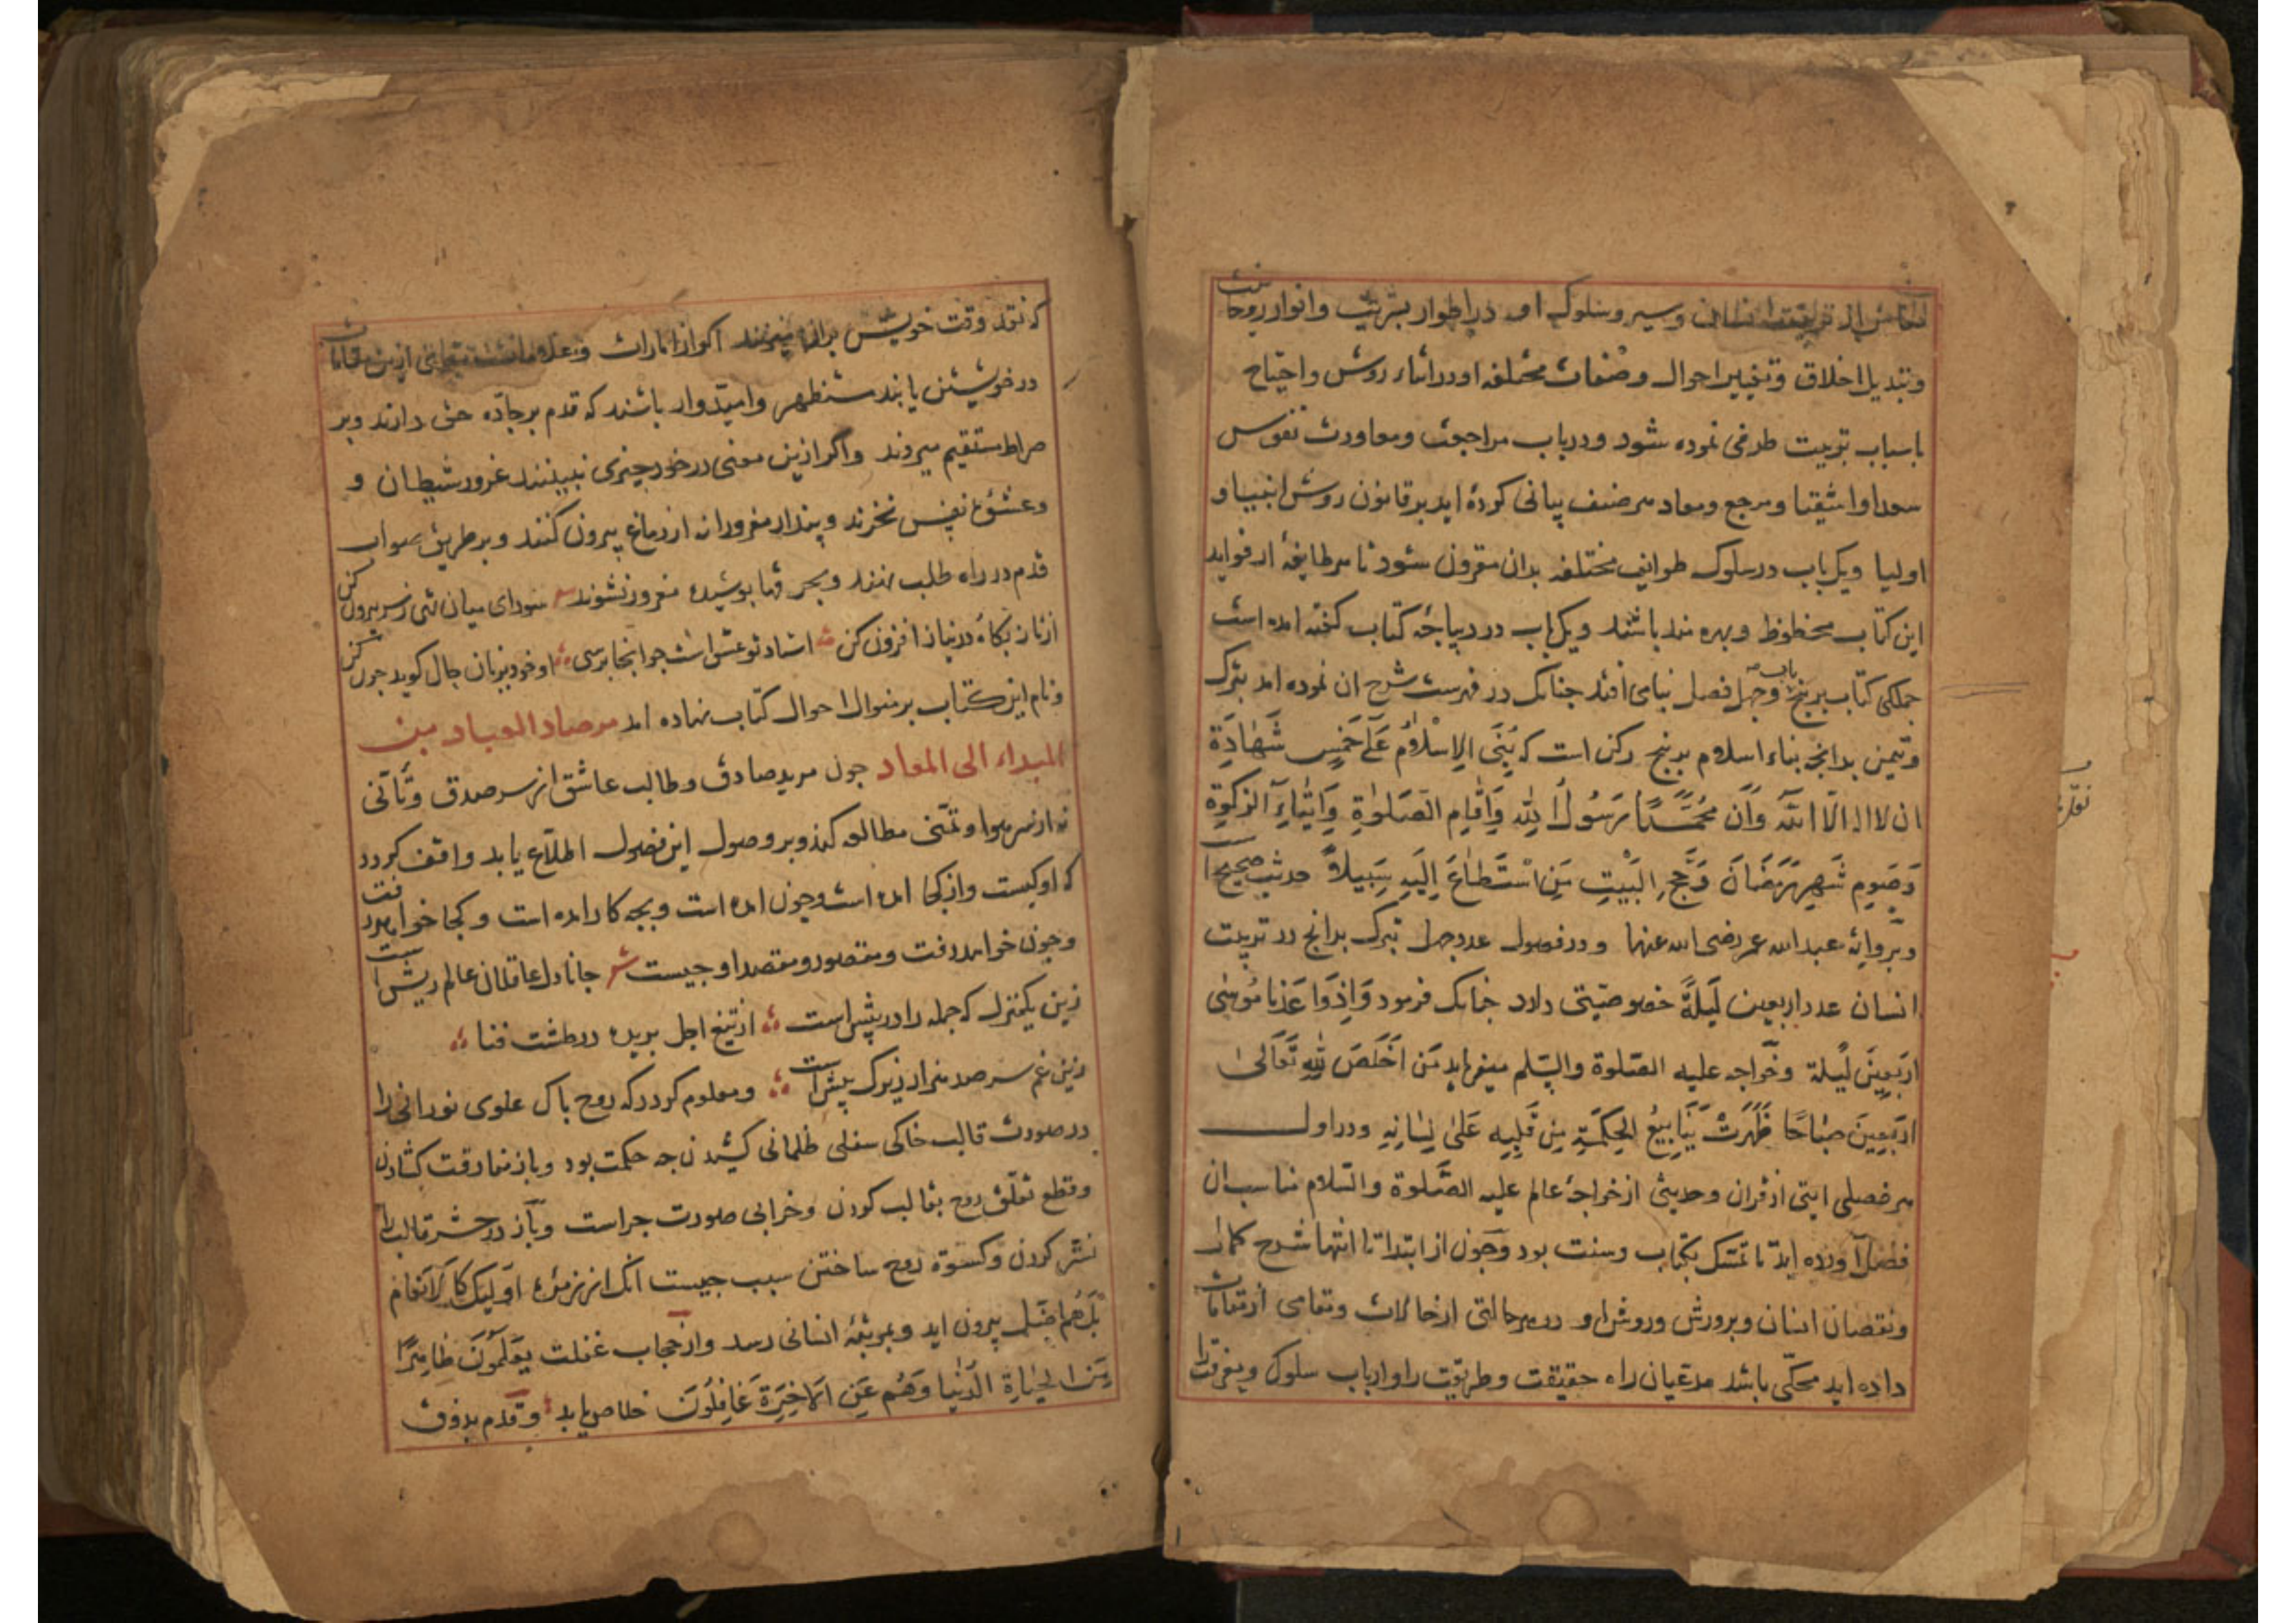 و سیر و سلوک او در اطوار بشریت و انوار روحانیت
وتبدیل اخلاق وتغییر احوال وصفات مختلفه او در اثناء روش واحتیاج
باسباب تربیت طرفی نموده شود ودرباب مراجعت ومعاودت نفوس
سعدا واشقیا ومرجع ومعاد هر صنف بیانی کرده اید بر قانون روش انبیا و
اولیا ویک باب در سلوک طوایف مختلفه بدان مقرون شود تا هر طایفهٔ از فواید
این کتاب محظوظ وبهره مند باشند ویک باب در دیباجهٔ کتاب گفته امده است
جملکی کتاب بر پنج باب وجهل فصل بنا می افتد جنانک در فهرست شرح ان نموده امد تبرک
وتیمن بدانجه بناء اسلام بر پنج رکن است که بُنَی الاِسْلَامُ عَلَے خَمْسٍ شَهَادَةِ
ان لا اله الّا اللّٰه وَاَن مُحَمَّدًا رَسُولُ اللّٰهِ وَاَقَامِ الصَّلوٰةِ وَاِیْتَاءِ الزکٰوةِ
وَصَومِ شَهرِ رَمَضَانَ وَحَّجِ البَیْتِ مَنِ اسْتَطَاعَ اِلَیهِ سَبِیلاً حدیث صحیح است
وبروایهٔ عبدالله عمر رضی الله عنهما ودر فصول عدد جهل تبرک بدانج در تربیت
انسان عدد اربعین لَیلَةً خصوصیتی دارد جنانک فرمود وَاِذوَاعَدْنَا مُوسٰی
اَربَعِینَ لَیلة وخواجه علیه الصلوة والسّلم میفرماید مَن اَخلَصَ لِلّٰهِ تَعَالیٰ
اَربَعِینَ صَبَاحًا ظَهَرَتْ یَنَابِیعُ الحِکمَةِ مِن قَلبِهِ عَلیٰ لِسَانِهِ ودر اول
هر فصلی ایتی از قران وحدیثی از خواجهٔ عالم علیه الصّلوة والسّلام مناسب ان
فصل آورده اید تا تمسّک بکتاب وسنت بود وجون از ابتدا تا انتها شرح کمال
ونقصان انسان وپرورش وروش او در هر حالتی از حالات ومقامی از مقامات
داده اید محکّی باشد مدعیان راه حقیقت وطریقت را وارباب سلوک ومعرفت را
که نقد وقت خویش بران میزنند اکر از امارات وعلامات
در خویشتن یابند مستظهر وامیدوار باشند که قدم بر جادّه حق دارند وبر
صراط مستقیم میروند واکر ازین معنی در خود چیزی نبینند غرور شیطان و
وعشوهٔ نفس نخرند وپندار مغرورانه از دماغ بیرون کنند وبر طریق صواب
قدم در راه طلب نهند وبحر فها بوشیده مغرور نشوند سودای میان تهی ز سر بیرون کن
از ناز بکاه ودر نیاز افزون کن استاد تو عشق است جو انجا برسی او خود بزبان حال کوید جون کن
ونام این کتاب بر منوال احوال کتاب نهاده امد مرصاد العباد من
المبداء الی المعاد جون مرید صادق وطالب عاشق از سر صدق وتأنّی
نه از سر هوا وتمنّی مطالعه کند وبر وصول این فصول اطلاع یابد واقف کردد
که او کیست واز کجا امده است وجون امده است وبجه کار امده است وکجا خواهد رفت
وجون خواهد رفت ومقصود ومقصد او جیست شعر جانا دل عاقلان عالم ریش است
زین یکمنزل که جمله را در پیش است از تیغ اجل بریده در طشت فنا
زین غم سر صد هزار زیرک بیش است ومعلوم کردد که روح باک علوی نورانی را
در صورت قالب خاکی سفلی ظلمانی کشیدن جه حکمت بود وباز مفارقت کشادن
وقطع تعلّق روح بقالب کردن وخرابی صورت جراست وباز در حشر قالب را
نشر کردن وکسوة روح ساختن سبب جیست انک از زمرهٔ اُولَئِکَ کَالاَنعَام
بَلْ هُم اَضَل بیرون اید وبمرتبهٔ انسانی رسد واز حجاب غفلت یَعلَمُونَ ظَاهِرًا
مِنَ الحَیَاةِ الدُنْیا وَهُم عَنِ الآخِرَةِ غَافِلُونَ خلاص یابد وقدم بذوق